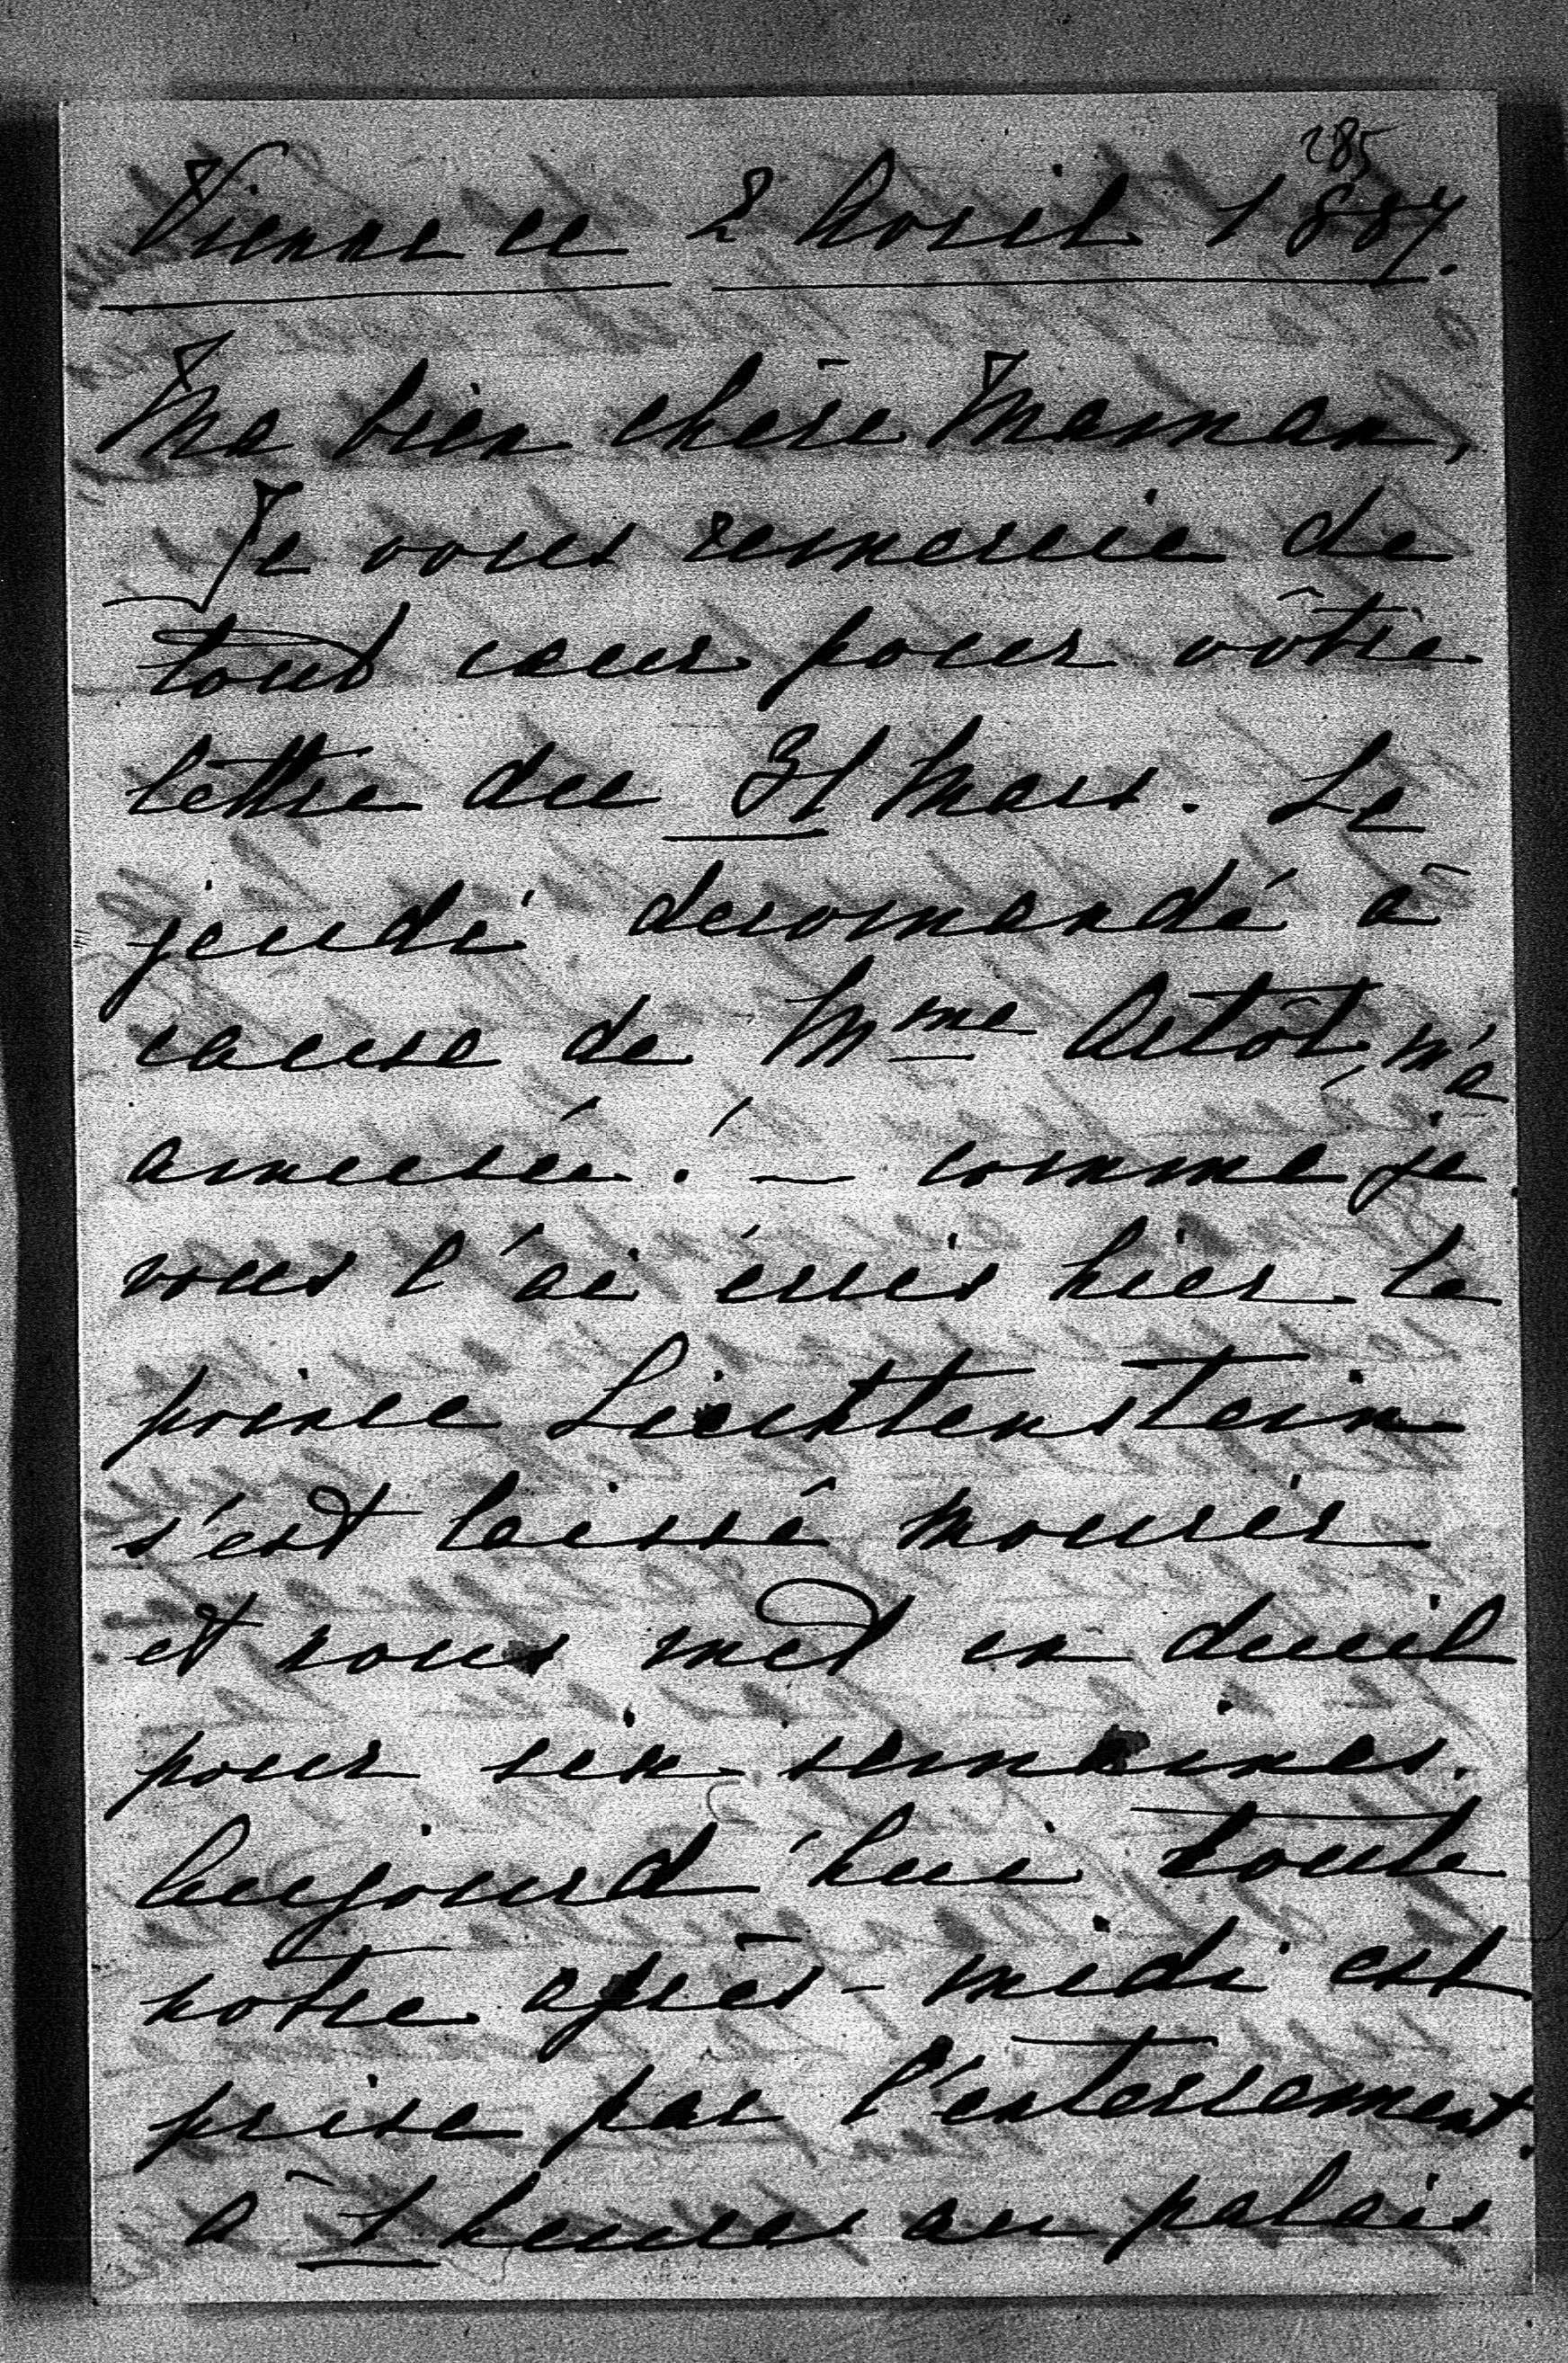 285
Vienne ce 2 Avril 1887.
Ma bien chère Maman,
Je vous remercie de
tout cœur pour vôtre
lettre du 31 Mars. Le
jeudi décomandé à
cause de Mme Artôt m'a
amusée. — comme je
vous l'ai écris hier le
prince Liechtenstein
s'est laissé mourir
et nous met en deuil
pour six semaines.
Aujourd'hui toute
notre après-midi est
prise par l'enterrement.
à heures au palais